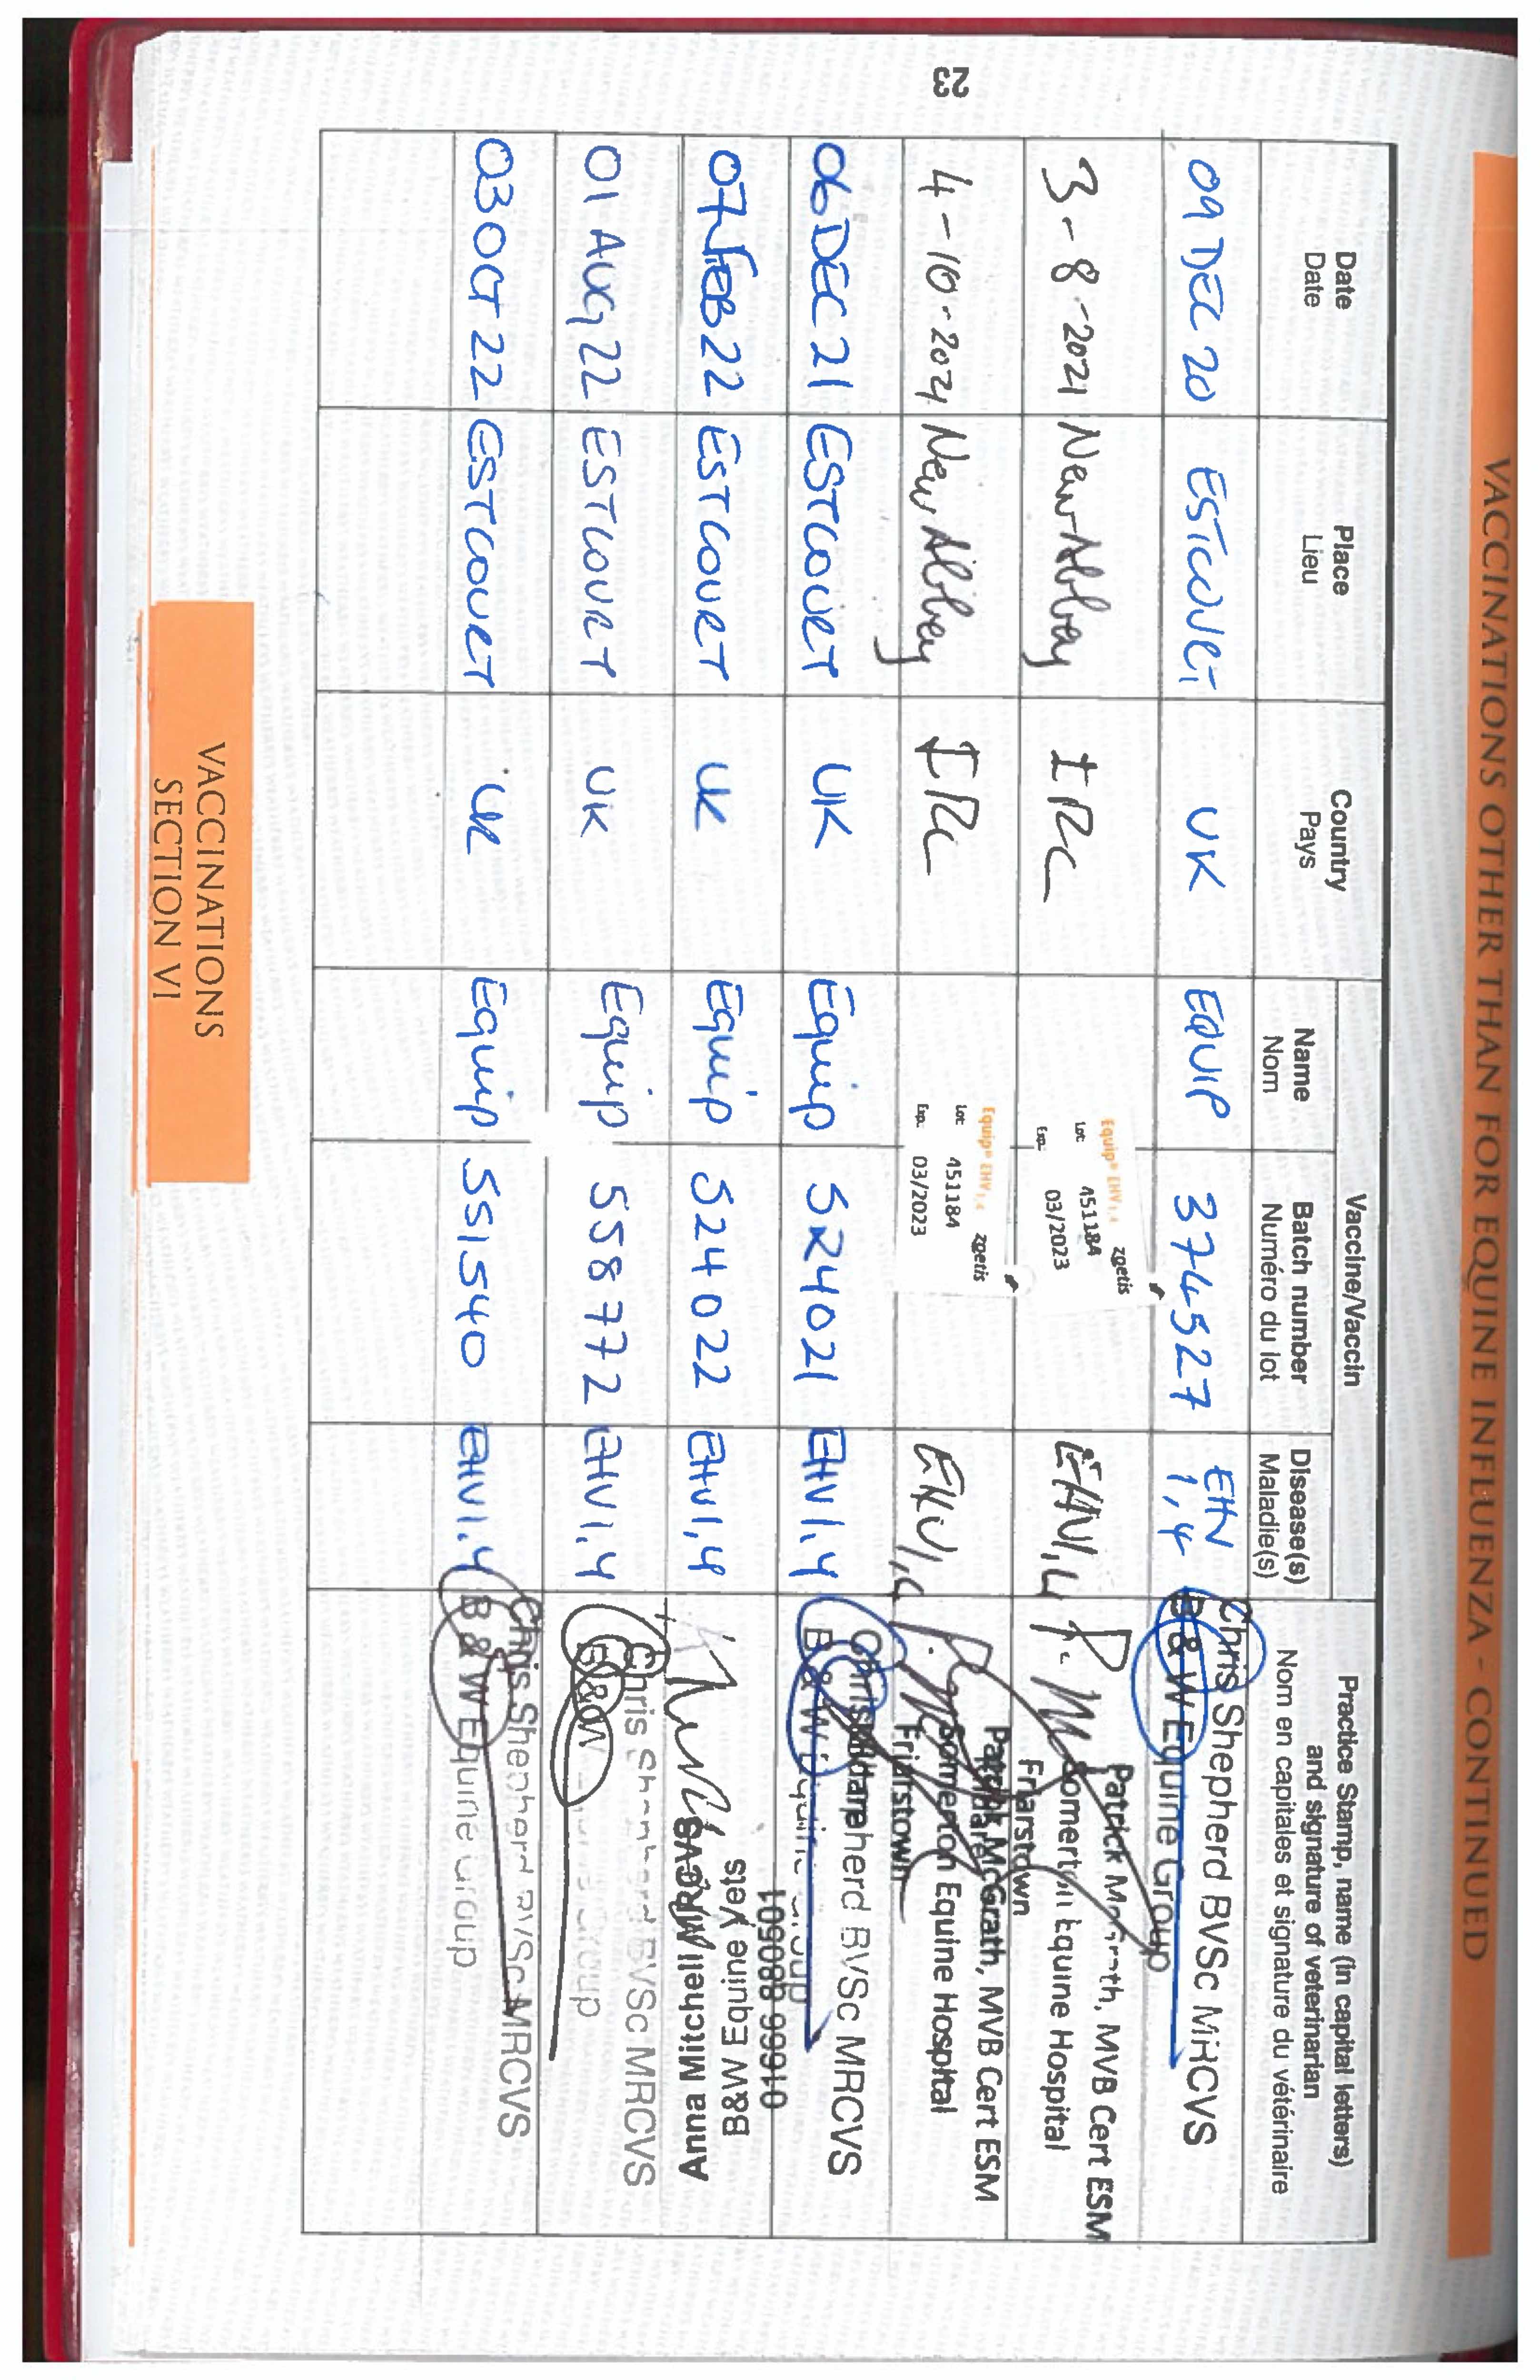 VACCINATIONS OTHER THAN FOR EQUINE INFLUENZA - CONTINUED
Date
Date
Place
Lieu
Country
Pays
Vaccine/Vaccin
Name
Nom
Batch number
Numéro du lot
Disease(s)
Maladie(s)
Practice Stamp, name (in capital letters)
and signature of veterinarian
Nom en capitales et signature du vétérinaire
09 DEC 20 ESTCOURT UK EQUIP 374527 EHV 1,4
Chris Shepherd BVSc MRCVS
B & W Equine Group
3-8-2021 New Abbey IRL
Equip® EHV1,4 zoetis
Lot: 451184
Exp: 03/2023
EHV1,4
Patrick McGrath, MVB Cert ESM
Somerton Equine Hospital
Friarstown
4-10-2021 New Abbey IRL
Equip® EHV1,4 zoetis
Lot: 451184
Exp: 03/2023
EHV1,4
Patrick McGrath, MVB Cert ESM
Somerton Equine Hospital
Friarstown
Kildare
06 DEC 21 ESTCOURT UK Equip 524021 EHV1,4
Chris Shepherd BVSc MRCVS
B & W Equine Group
07 FEB 22 ESTCOURT UK Equip 524022 EHV1,4
Anna Mitchell MRCVS
B&W Equine Vets
01666 880501
01 AUG 22 ESTCOURT UK Equip 558772 EHV1,4
Chris Shepherd BVSc MRCVS
B & W Equine Group
03 OCT 22 ESTCOURT UK Equip 551540 EHV1,4
Chris Shepherd BVSc MRCVS
B & W Equine Group
VACCINATIONS
SECTION VI
23